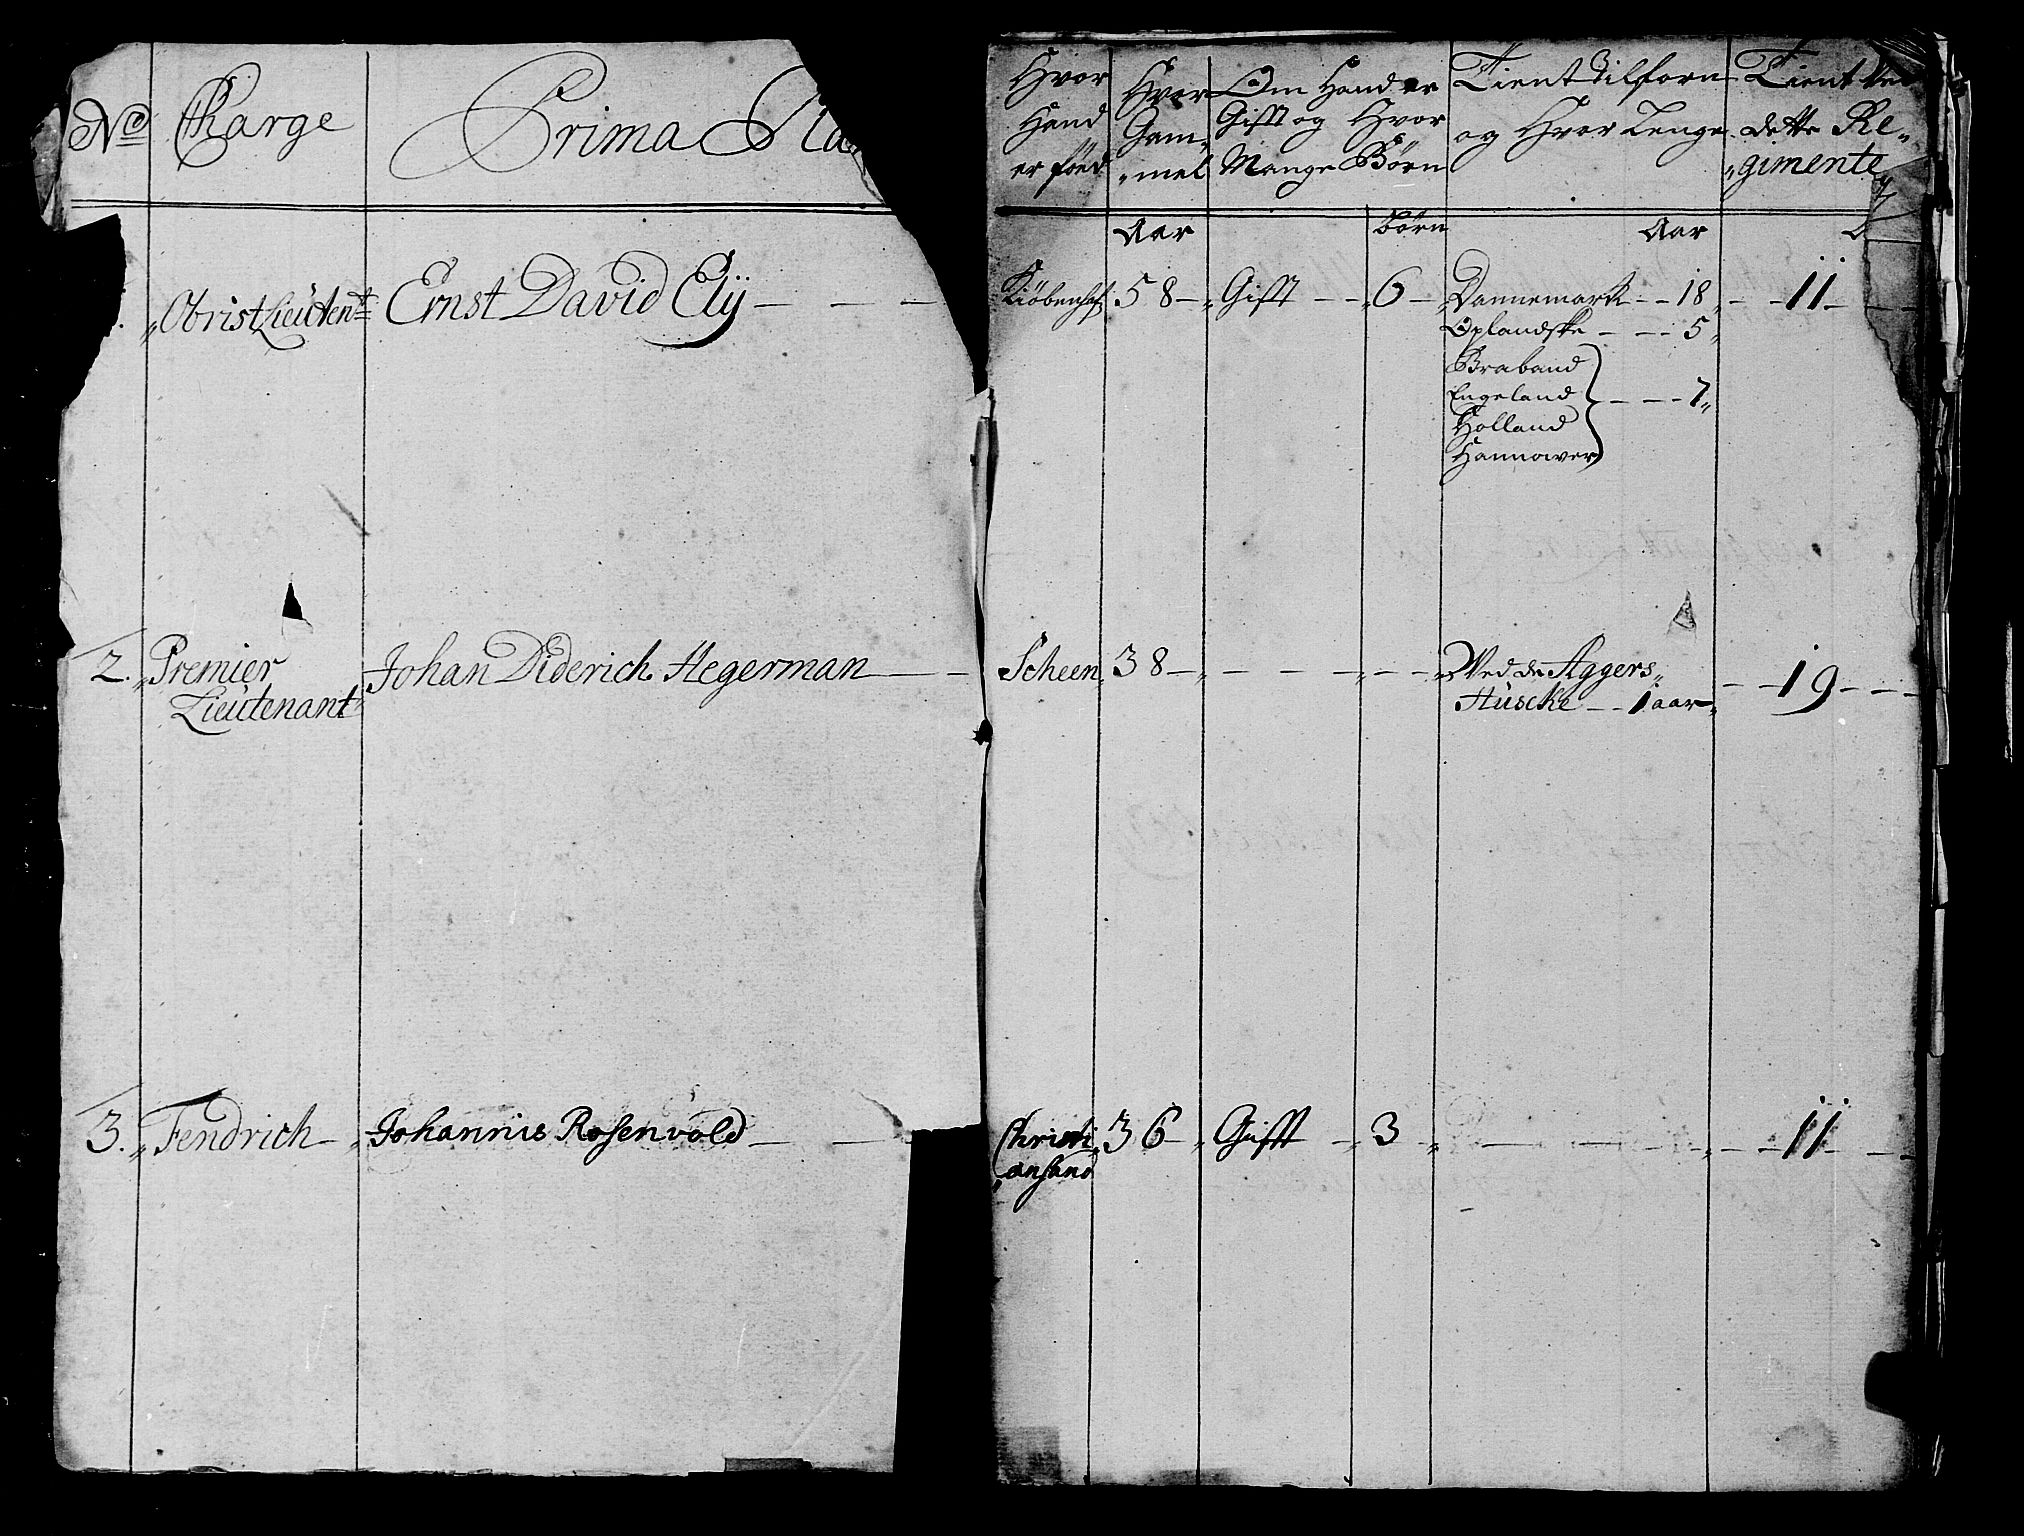 No Charge Prima Pla
Hvor Hand er föed
Hvor Gam„ „mel
Om Hand er Gift og Hvor Mange Börn
Tient tilforn og Hvor Lenge
Tient ved dette Re„ „gimente
Aar Börn Aar
„Obrist Lieutent Ernst David Elÿ — — — Kiöbenhf. 58 „Gift — „6 „Dannemark — 18„ — 11
Oplandske — — 5„
Braband
Engeland — — — 7„
Holland
Hannower
2. „Premier Johan Diderich Hegerman — — Scheen„ 38 — „ — — — „ — „Ved de Aggers„ — 19 — — —
Lieutenant Húscke — 1 aar„
3. „Fendrich „Johannis Rosenvold — — Christi„ 36 „Gifft — „3 „ — — „ — 11 — —
„ansand